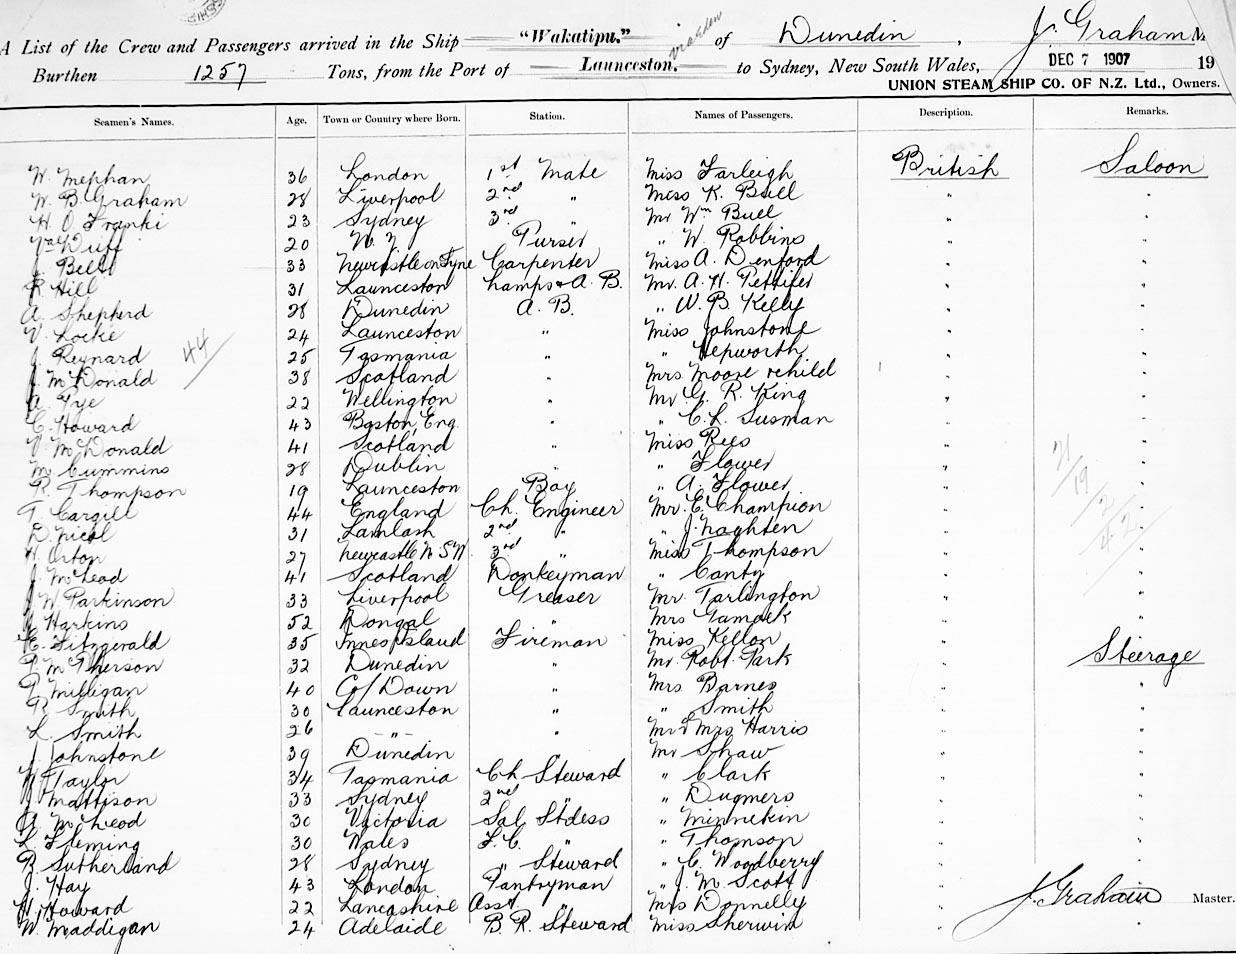 A List of the Crew and Passengers arrived in the Ship "Wakatipu." of Dunedin, J. Graham
Burthen 1257 Tons, from the Port of Launceston. to Sydney, New South Wales, DEC 7 1907 19
UNION STEAM SHIP CO. OF N.Z. Ltd., Owners.
Seamen's Names. Age. Town or Country where Born. Station. Names of Passengers. Description. Remarks.
W. Mephan 36 London 1st Mate Miss Farleigh British Saloon
W. B. Graham 28 Liverpool 2nd " Miss K. Buel " "
H. O. Franki 23 Sydney 3rd " Mr Wm Buel " "
Duff 20 N. Z. Purser " W. Robbins " "
J. Bell 33 Newcastle on Tyne Carpenter Miss A. Denford " "
R. Hill 31 Launceston Lamps & A. B. Mr. A. H. Pettifer " "
A. Shepherd 28 Dunedin A. B. " W. B. Kelly " "
V. Locke 24 Launceston " Miss Johnstone " "
J. Reynard 25 Tasmania " " Hepworth " "
J. McDonald 38 Scotland " Mrs. Moore & child " "
A. Pye 22 Wellington " Mr G. R. King " "
C. Howard 43 Boston, Eng. " " C. L. Susman " "
McDonald 41 Scotland " Miss Rees " "
M. Cummins 28 Dublin " " Flower " "
R. Thompson 19 Launceston Boy " A. Flower " "
T. Cargill 44 England Ch. Engineer Mr. E. Champion " "
D. Nicol 31 Lamlash 2nd " " J. Naghten " "
H. Orton 27 Newcastle N S W 3rd " Miss Thompson " "
J. McLeod 41 Scotland Donkeyman " Canty " "
J. W. Parkinson 33 Liverpool Greaser Mr. Tarlington " "
J. Harkins 52 Dongal " Mrs " "
E. Fitzgerald 35 Innes Island Fireman Miss Kellon " "
P. McPherson 32 Dunedin " Mr. Robt. Park " Steerage
P. Milligan 40 Co/ Down " Mrs Barnes " "
R. Smith 30 Launceston " " Smith " "
L. Smith 26 " " Mr & Mrs Harris " "
J. Johnstone 39 Dunedin Mr Shaw " "
W. Taylor 34 Tasmania Ch Steward " Clark " "
Mattison 33 Sydney 2nd " " Dugmers " "
A. McLeod 30 Victoria Sal Stdess " Minnekin " "
L. Fleming 30 Wales F. C. " " Thomson " "
B. Sutherland 28 Sydney " Steward " C. Woodberry " "
J. Hay 43 London Pantryman " J. M. Scott "
H. Howard 22 Lancashire Asst. " Mrs Donnelly " J. Graham Master.
W. Maddigan 24 Adelaide B. R. Steward Miss Sherwin " "
44
21
19
2
42